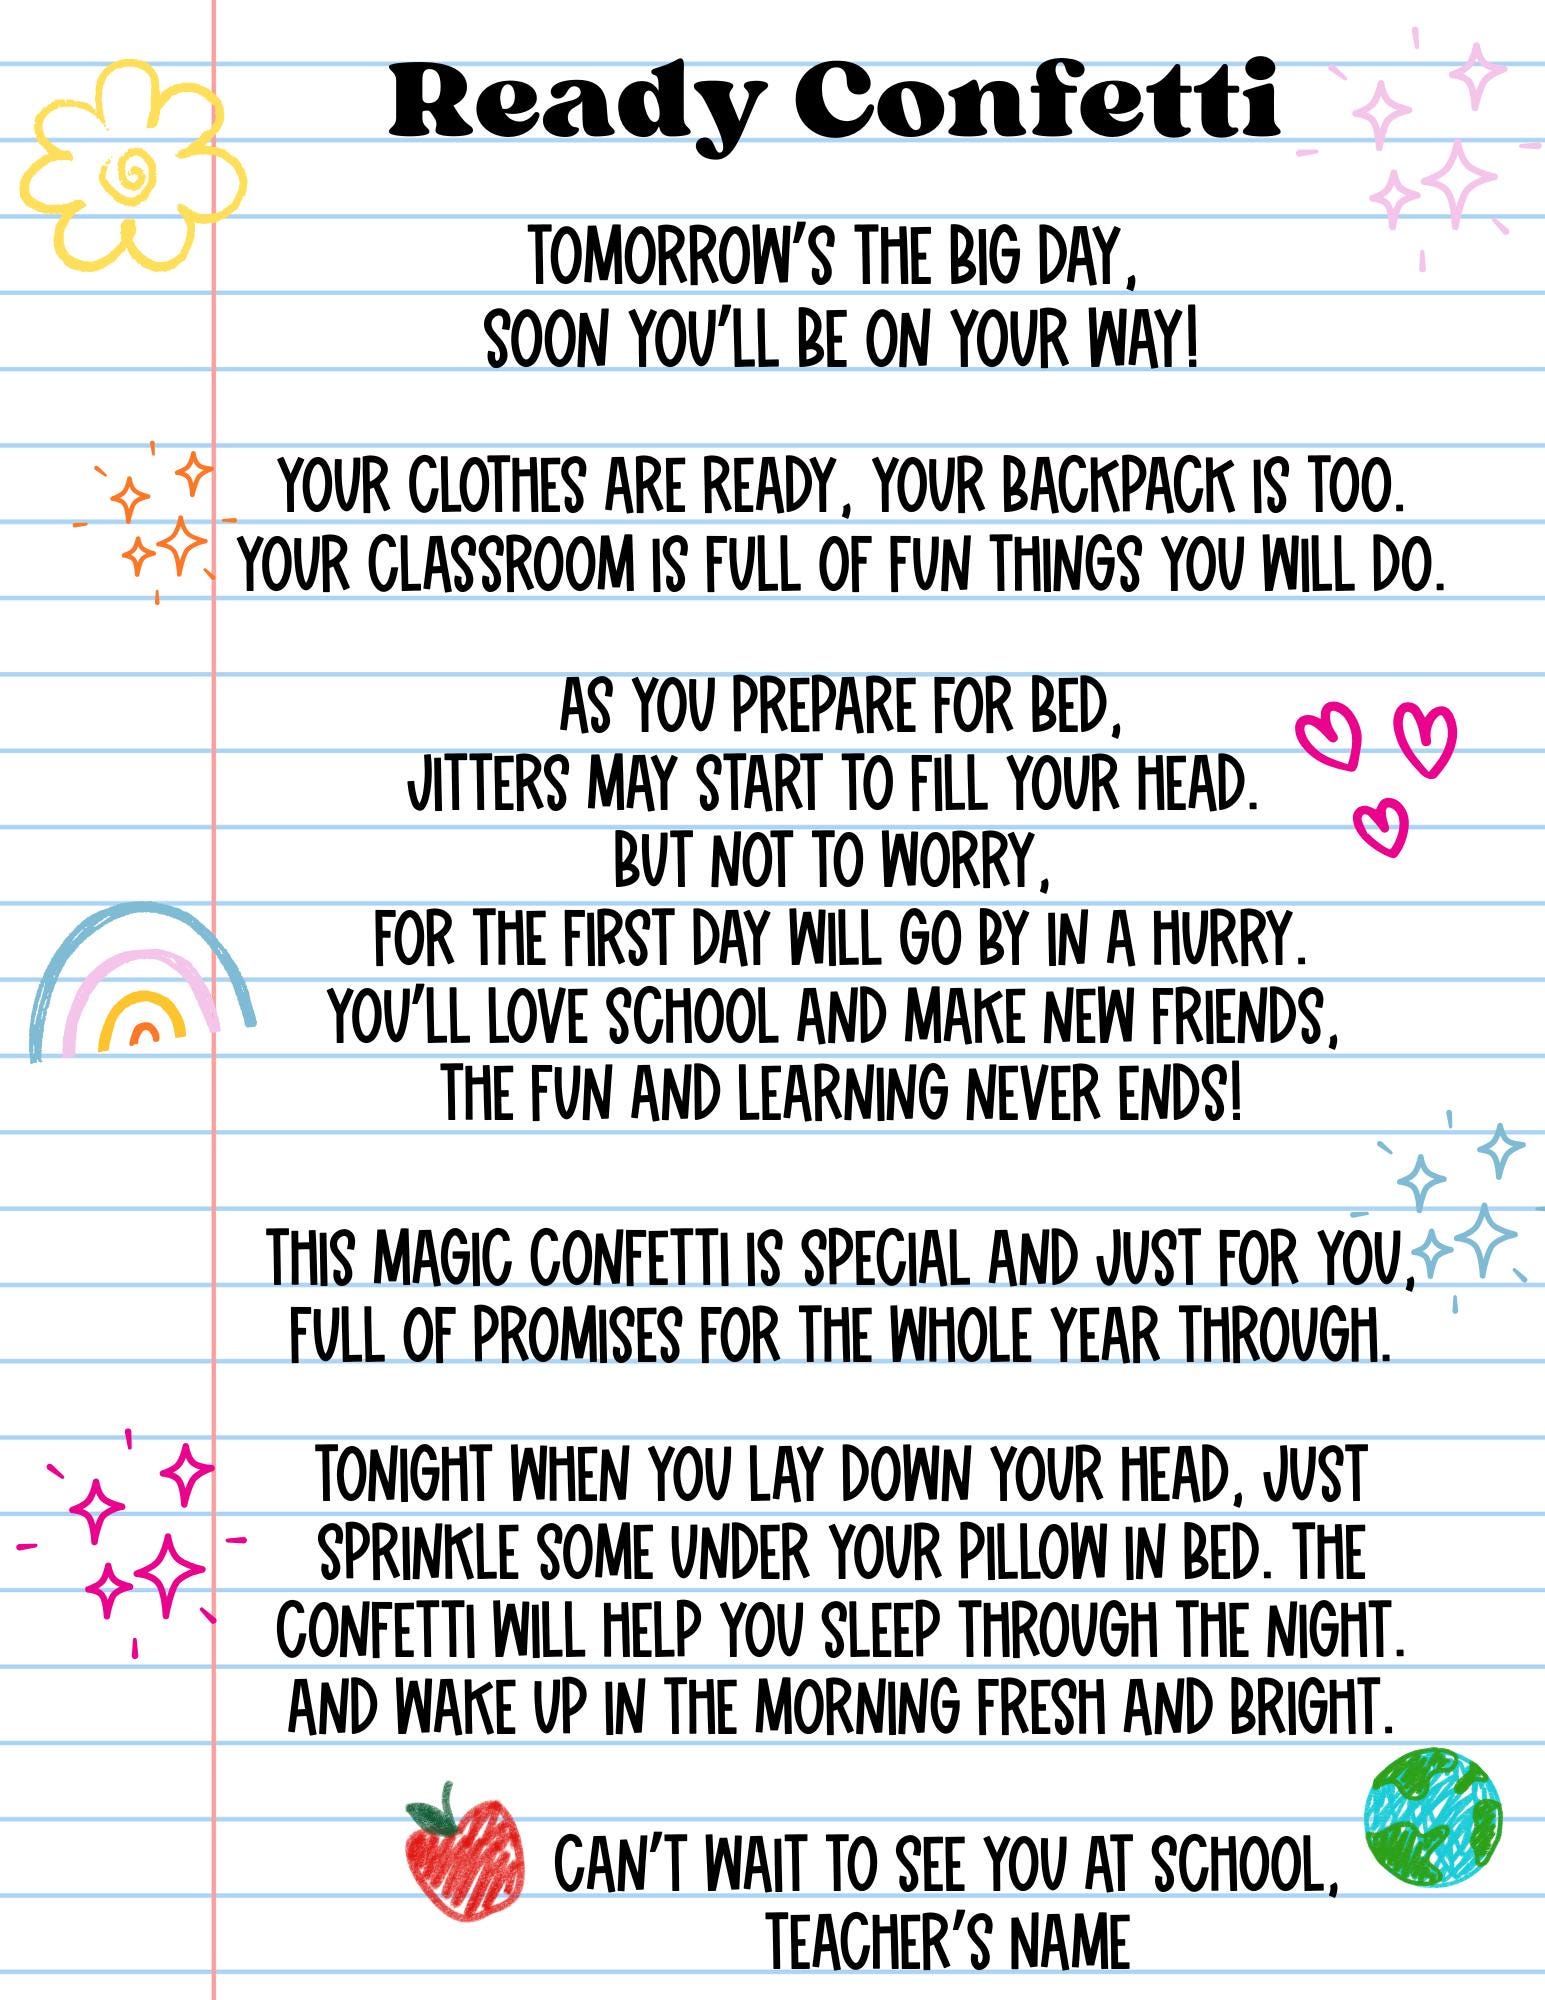 Ready Confetti
TOMORROW'S THE BIG DAY,
SOON YOU'LL BE ON YOUR WAY!
YOUR CLOTHES ARE READY, YOUR BACKPACK IS TOO.
YOUR CLASSROOM IS FULL OF FUN THINGS YOU WILL DO.
AS YOU PREPARE FOR BED,
JITTERS MAY START TO FILL YOUR HEAD.
BUT NOT TO WORRY,
FOR THE FIRST DAY WILL GO BY IN A HURRY.
YOU'LL LOVE SCHOOL AND MAKE NEW FRIENDS,
THE FUN AND LEARNING NEVER ENDS!
THIS MAGIC CONFETTI IS SPECIAL AND JUST FOR YOU,
FULL OF PROMISES FOR THE WHOLE YEAR THROUGH.
TONIGHT WHEN YOU LAY DOWN YOUR HEAD, JUST
SPRINKLE SOME UNDER YOUR PILLOW IN BED. THE
CONFETTI WILL HELP YOU SLEEP THROUGH THE NIGHT.
AND WAKE UP IN THE MORNING FRESH AND BRIGHT.
CAN'T WAIT TO SEE YOU AT SCHOOL,
TEACHER'S NAME